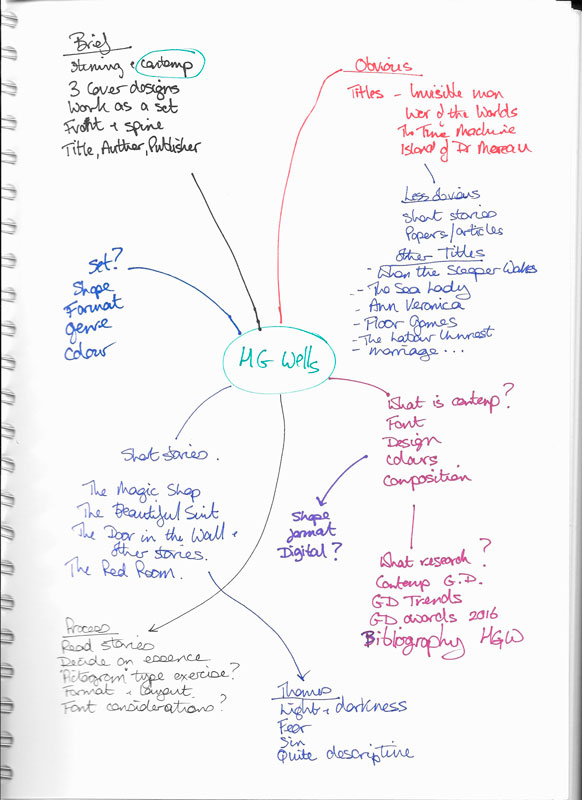 Brief
Stining + contemp
3 Cover designs
Work as a set
Front + spine
Title, Author, Publisher
Obvious
Titles - Invisible man
War of the Worlds
The Time Machine
Island of Dr Moreau
Less obvious
Short stories
Papers/articles
Other Titles
- When the Sleeper Wakes
- The Sea Lady
- Ann Veronica
- Floor Games
- The Labour Unrest
- marriage ...
Set?
Shape
Format
Genre
Colour
HG Wells
What is contemp?
Font
Design
Colours
Composition
Shape
format
Digital?
What research?
Contemp G.D.
GD Trends
GD awards 2016
Bibliography HGW
Short stories.
The Magic Shop
The Beautiful Suit
The Door in the Wall +
Other stories.
The Red Room.
Process
Read stories
Decide on essence
Pictogram type exercise?
Format + layout
Font considerations?
Themes
Light + darkness
Fear
Sin
Quite descriptive